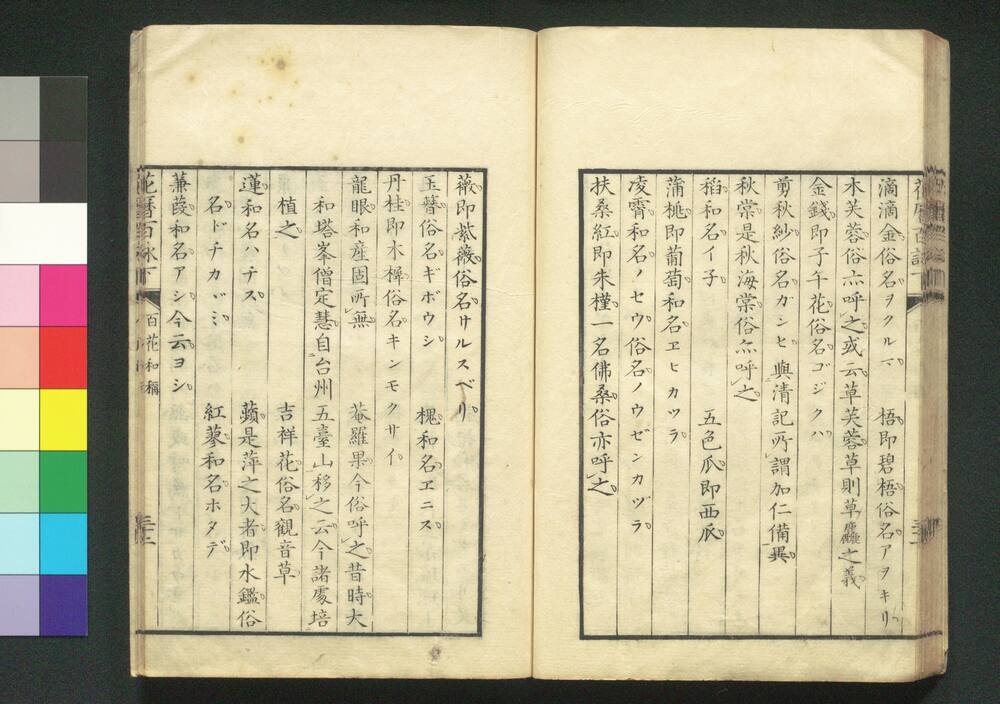 滴滴金俗名ヲクルマ　梧即碧梧俗名アヲキリ
木芙蓉俗亦呼之或云草芙蓉草則草麤之義
金錢即子午花俗名ゴジクハ
剪秋紗俗名ガンヒ　輿清記所謂加仁備異
秋棠是秋海棠俗亦呼之
稻和名イ子　五色瓜即西瓜
蒲桃即葡萄和名ヱヒカツラ
凌霄和名ノセウ俗名ノウゼンカヅラ
扶桑紅即朱槿一名佛桑俗亦呼之
薇即紫薇俗名サルスベリ
玉簪俗名ギボウシ　槐和名ヱニス
丹桂即木樨俗名キンモクサイ
龍眼和産固所無　菴羅果今俗呼之昔時大
和塔峯僧定慧自台州五臺山移之云今諸處培
植之　吉祥花俗名觀音草
蓮和名ハチス　蘋是萍之大者即水鑑俗
名ドチカヾミ　紅蓼和名ホタデ
蒹葭和名アシ今云ヨシ
花暦百詠下　百花和稱